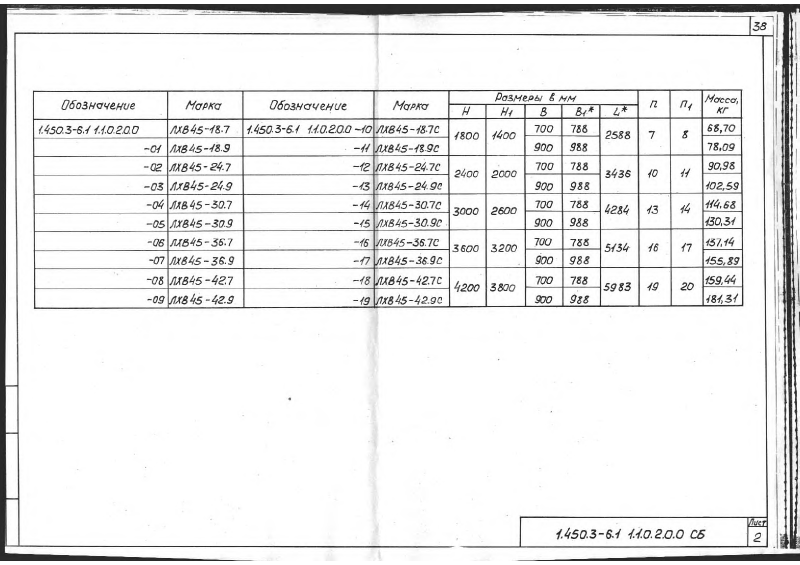 38
Обозначение Марка Обозначение Марка Размеры в мм n n1 Масса, кг
H H1 B B1* L*
1.450.3-6.1 1.1.0.2.0.0 ЛХВ45-18.7 1.450.3-6.1 1.1.0.2.0.0 -10 ЛХВ45-18.7С 1800 1400 700 788 2588 7 8 68,70
-01 ЛХВ45-18.9 -11 ЛХВ45-18.9С 900 988 78,09
-02 ЛХВ45-24.7 -12 ЛХВ45-24.7С 2400 2000 700 788 3436 10 11 90,98
-03 ЛХВ45-24.9 -13 ЛХВ45-24.9С 900 988 102,59
-04 ЛХВ45-30.7 -14 ЛХВ45-30.7С 3000 2600 700 788 4284 13 14 114,68
-05 ЛХВ45-30.9 -15 ЛХВ45-30.9С 900 988 130,31
-06 ЛХВ45-36.7 -16 ЛХВ45-36.7С 3600 3200 700 788 5134 16 17 137,14
-07 ЛХВ45-36.9 -17 ЛХВ45-36.9С 900 988 155,89
-08 ЛХВ45-42.7 -18 ЛХВ45-42.7С 4200 3800 700 788 5983 19 20 159,44
-09 ЛХВ45-42.9 -19 ЛХВ45-42.9С 900 988 181,31
1.450.3-6.1 1.1.0.2.0.0 СБ
Лист
2